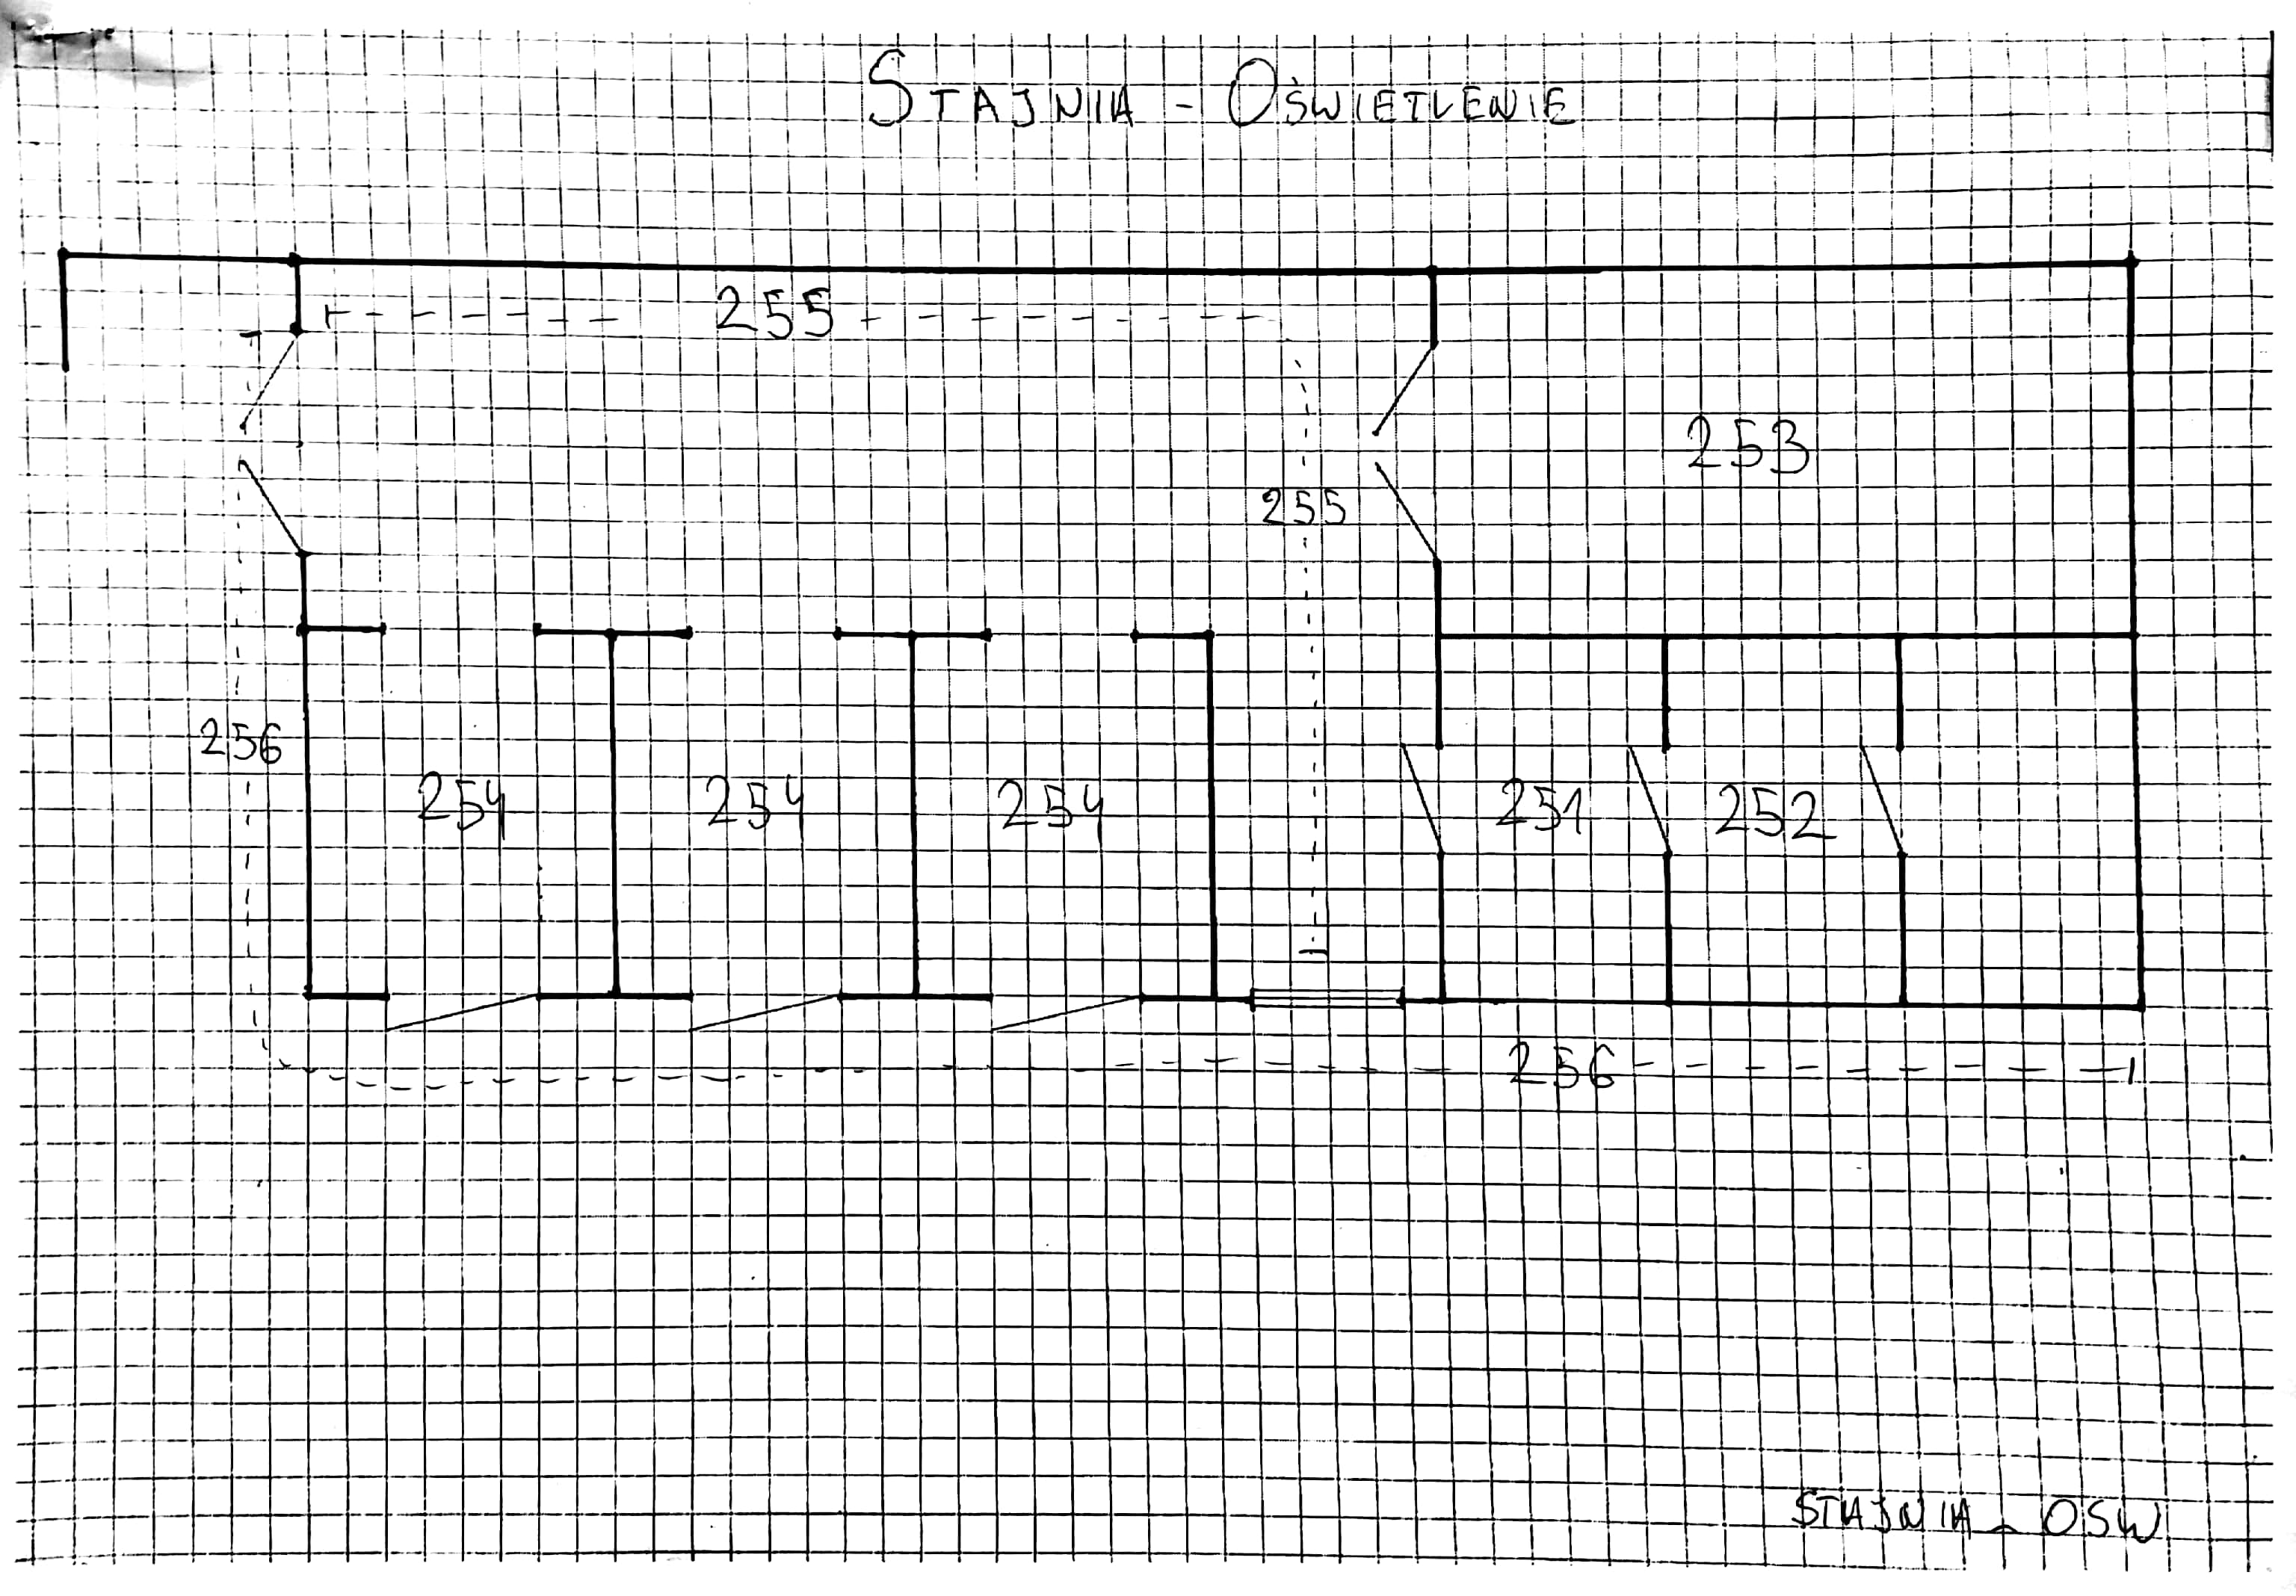 STAJNIA - OŚWIETLENIE
255
253
255
256
254 254 254 251 252
256
STAJNIA_OSW